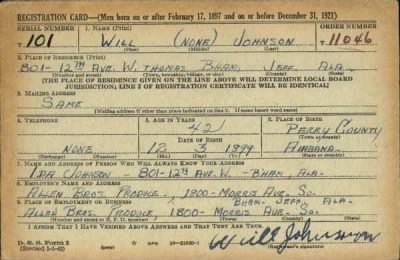 REGISTRATION CARD—(Men born on or after February 17, 1897 and on or before December 31, 1921)
SERIAL NUMBER 1. NAME (Print) ORDER NUMBER
T 101 WILL (NONE) JOHNSON T 11046
(First) (Middle) (Last)
2. PLACE OF RESIDENCE (Print)
801-12TH AVE. W. THOMAS BHAM, JEFF. ALA.
(Number and street) (Town, township, village, or city) (County) (State)
[THE PLACE OF RESIDENCE GIVEN ON THE LINE ABOVE WILL DETERMINE LOCAL BOARD
JURISDICTION; LINE 2 OF REGISTRATION CERTIFICATE WILL BE IDENTICAL]
3. MAILING ADDRESS
SAME
[Mailing address if other than place indicated on line 2. If same insert word same]
4. TELEPHONE 5. AGE IN YEARS 6. PLACE OF BIRTH
42 PERRY COUNTY
DATE OF BIRTH (Town or county)
NONE 12 3 1899 ALABAMA
(Exchange) (Number) (Mo.) (Day) (Yr.) (State or country)
7. NAME AND ADDRESS OF PERSON WHO WILL ALWAYS KNOW YOUR ADDRESS
IDA JOHNSON 801-12TH AVE. W - BHAM ALA.
8. EMPLOYER'S NAME AND ADDRESS
ALLEN BROS. PRODUCE, 1800-MORRIS AVE. SO.
9. PLACE OF EMPLOYMENT OR BUSINESS BHAM, JEFF. ALA.
ALLEN BROS. PRODUCE, 1800-MORRIS AVE. SO.
(Number and street or R. F. D. number) (Town) (County) (State)
I AFFIRM THAT I HAVE VERIFIED ABOVE ANSWERS AND THAT THEY ARE TRUE.
D. S. S. Form 1
(Revised 1-1-42) (over)
Will Johnson